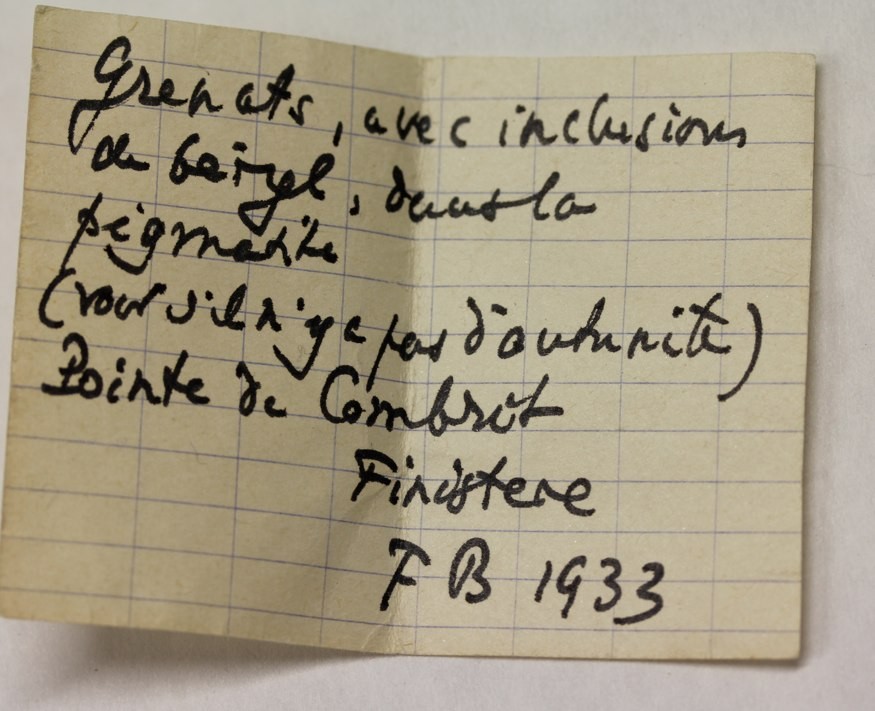 Grenats, avec inclusions
de béryl, dans la
pegmatite
(voir s'il n'y a pas d'autunite)
Pointe de Combrit
Finistere
F B 1933